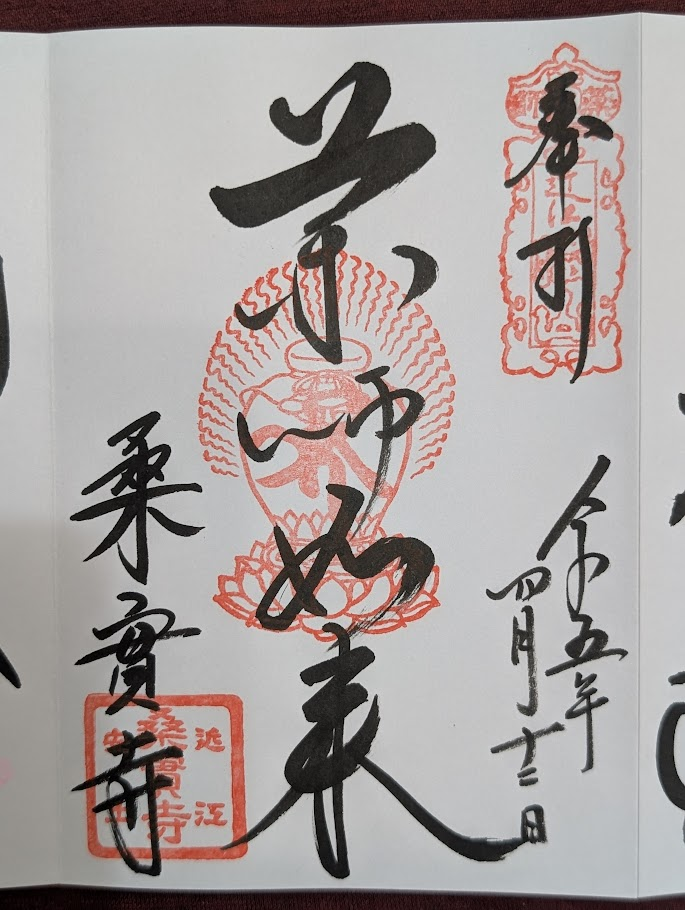 奉拝
令五年
四月十二日
薬師如来
桑實寺
近江
桑實寺